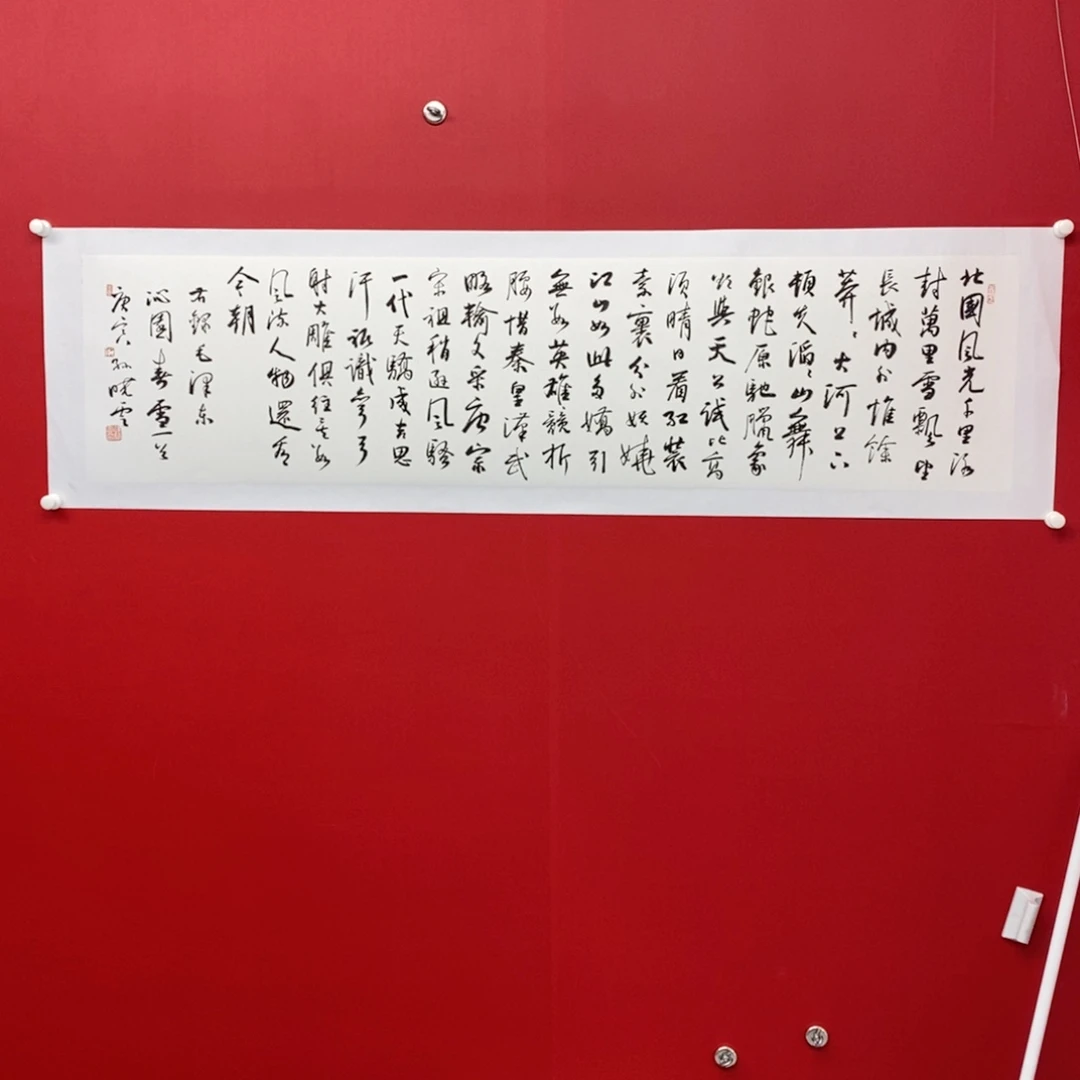 北國風光千里冰
封萬里雪飄望
長城內外惟餘
莽〻大河上下
頓失滔〻山舞
銀蛇原馳臘象
欲與天公試比高
須晴日看紅裝
素裹分外妖嬈
江山如此多嬌引
無數英雄競折
腰惜秦皇漢武
略輸文采唐宗
宋祖稍遜風騷
一代天驕成吉思
汗祗識彎弓
射大雕俱往矣數
風流人物還看
今朝
右錄毛澤東
沁園春雪一首
庚寅孫曉雲